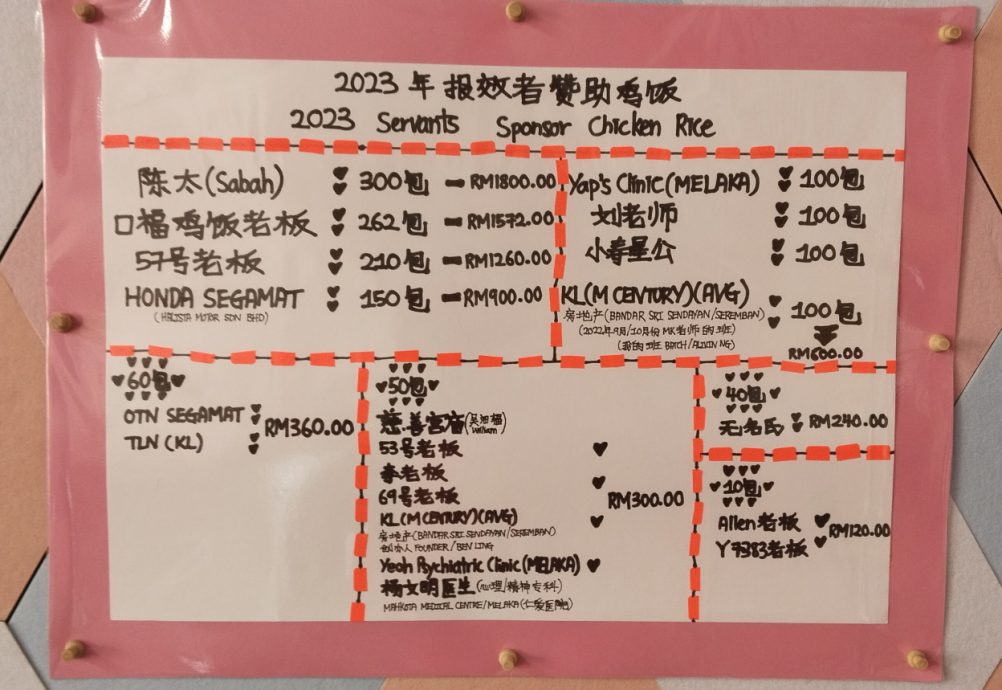 2023 年 报效者赞助鸡饭
2023 Servants Sponsor Chicken Rice
陈太(Sabah) 300包 - RM1800.00
口福鸡饭老板 262包 - RM1572.00
57号老板 210包 - RM1260.00
HONDA SEGAMAT 150包 - RM900.00
(HALISTA MOTOR SDN BHD)
Yap's Clinic(MELAKA) 100包
刘老师 100包
小春星公 100包
KL(M CENTURY)(AVG) 100包
房地产(BANDAR SRI SENDAYAN/SEREMBAN)
(2022年9月/10月份 MK老师的班)
班 BATCH/
RM600.00
60包
OTN SEGAMAT
TLN (KL)
RM360.00
50包
慈善宫庙(William)
53号老板
李老板
69号老板
RM300.00
KL(M CENTURY)(AVG)
房地产(BANDAR SRI SENDAYAN/SEREMBAN)
创办人 FOUNDER/BEN LING
Yeoh Psychiatric Clinic(MELAKA)
杨文明医生(心理/精神专科)
MAHKOTA MEDICAL CENTRE/MELAKA(仁爱医院)
40包
无名氏 RM240.00
10包
Allen老板
Y7383老板
RM120.00